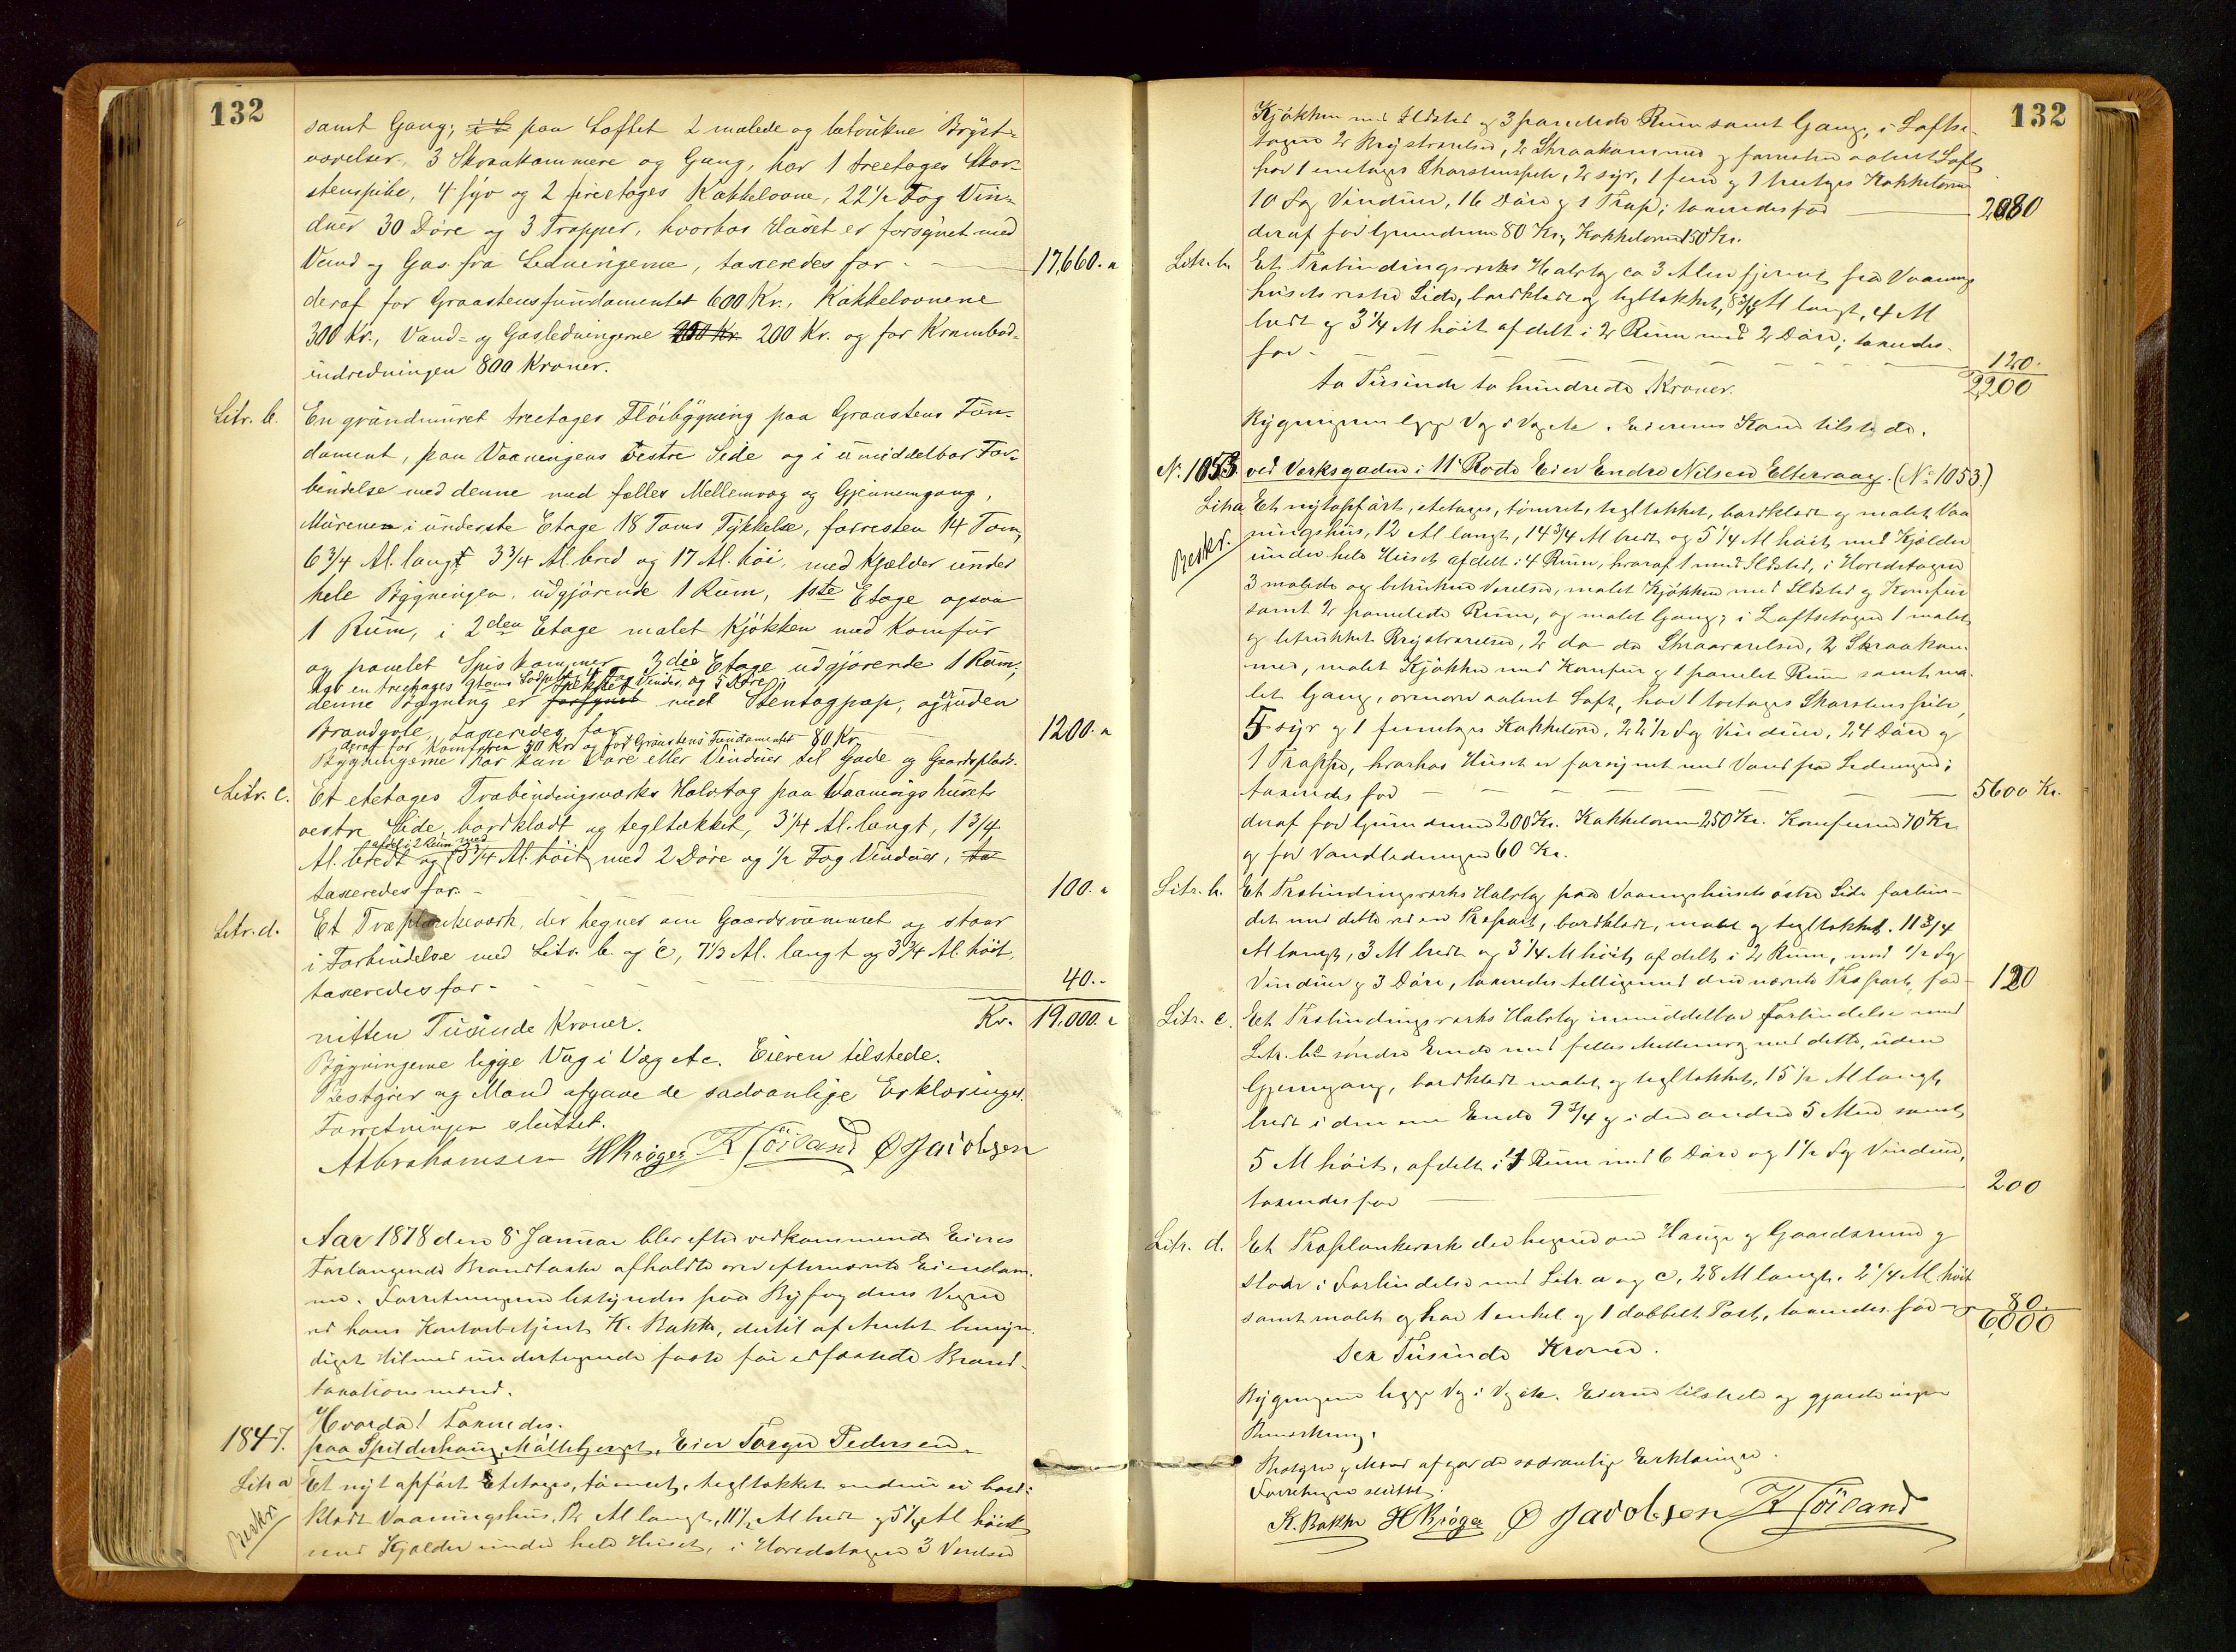 132
samt Gang; i L paa Loftet 2 malede og betrukne Bryst-
værelser, 3 Skraakammere og Gang, har 1 treetages Skor-
stenspibe, 4 fyr og 2 fireetages Kakkelovne, 22 1/2 Fag Vin-
duer 30 Døre og 3 Trapper, hvorhos Huset er forsynet med
Vand og Gas fra Ledningerne, taxeredes for - 17,660. "
deraf for Graastensfundamentet 600 Kr., Kakkelovnene
300 Kr., Vand- og Gasledningerne 200 Kr. 200 Kr. og for Krambod-
indredningen 800 Kroner.
Litr. b. En grundmuret treetages Fløibygning paa Graastens Fun-
dament, paa Vaaningens vestre Side og i umiddelbar For-
bindelse med denne med fælles Mellemvæg og Gjennemgang,
Murene i underste Etage 18 Toms Tykkelse, forresten 14 Tom,
6 3/4 Al. langt 3 3/4 Al. bred og 17 Al. høi, med Kjelder under
hele Bygningen, udgjørende 1 Rum, 1ste Etage ogsaa
1 Rum, i 2den Etage malet Kjøkken med Komfur
og panelet Spiskammer, 3die Etage udgjørende 1 Rum;
har en treetages 9toms Lodpibe, 4 Fag Vinduer og 5 Døre;
denne Bygning er forsynet tækket med Stentagpap, og er uden
Brandgavle, taxeredes for 1200. "
deraf for Komfuren 50 Kr. og for Graastens Fundamentet 80 Kr.
Bygningerne har kun Døre eller Vinduer til Gade og Gaardsplads.
Litr. c. Et etetages Træbindingsværks Halvtag paa Vaaningshusets
vestre Side, bordklædt og tegltækket, 3 1/4 Al. langt, 1 3/4
afdelt i 2 Rum med
Al. bredt og 3 3/4 Al. høit med 2 Døre og 1/2 Fag Vinduer, ta
taxeredes for - 100. "
Litr. d. Et Træplankeværk, der hegner om Gaardsrummet og staar
i Forbindelse med Litr. b og c, 7 1/3 Al. langt og 3 3/4 Al. høit,
taxeredes for - 40. -
nitten Tusinde Kroner. Kr. 19,000. "
Bygningerne ligge Væg i Væg etc. Eieren tilstede.
Bestyrer og Mænd afgave de sædvanlige Erklæringer.
Forretningen sluttet.
A Abrahamsen H Krøger K Törland O Jacobsen
Aar 1878 den 8 Januar blev efter vedkommende Eieres
Forlangende Brandtaxter afholdte over efternævnte Eiendom-
me. Forretningerne bestyredes paa Byfogdens Vegne
ved hans Kontorbetjent K. Bakke, dertil af Amtet bemyn-
diget tilligemed undertegnede faste for edfæstede Brand-
taxationsmænd.
Hvorda! Taxeredes.
1847. paa Spilderhaug Møllebjerget, Eier Torger Pedersen.
Litr a Et nyt opført Etetages, tømret, tegltækket endnu ei bord-
Beskr. klædt Vaaningshus, 12 Al langt, 11 1/2 Al bredt og 5 1/4 Al høit
med Kjælder under hele Huset, i Hovedetagen 3 Værelser
132
Kjøkken med Ildsted og 3 panelede Rum samt Gang, i Lofts-
etagen 2 Brystværelser, 2 Skraakammere og forresten aabent Loft,
har 1 enetages Skorstenspibe, 2 fyr, 1 fem og 1 treetages Kakkelovne
10 Fag Vinduer, 16 Døre og 1 Trap; taxeredes for 2080
deraf for Grundmur 80 Kr., Kakkelovne 150 Kr.
Litr. b. Et Træbindingsværks Halvtag ca 3 Alen fjernet fra Vaanings-
husets vestre Side, bordklædt og tegltækket, 8 3/4 Al langt, 4 Al
bredt og 3 1/4 Al høit afdelt i 2 Rum med 2 Døre; taxeredes
for - 120.
to Tusinde to hundrede Kroner. 2,200
Bygningerne ligge Væg i Væg etc. Eierens Kone tilstede.
N. 1053 ved Verksgaden i 11 Rode Eier Endre Nilsen Eltervaag. (No 1053.)
Litr a Et nytopført, etetages, tømret, tegltækket, bordklædt og malet Vaa-
Beskr. ningshus, 12 Al langt, 14 3/4 Al bredt og 5 1/4 Al høit med Kjælder
under hele Huset afdelt i 4 Rum, hvoraf 1 med Ildsted, i Hovedetagen
3 malede og betrukne Værelser, malet Kjøkken med Ildsted og Komfur
samt 2 panelede Rum, og malet Gang; i Loftsetagen 1 malet
og betrukket Brystværelse, 2 do do Skraaværelser, 2 Skraakam-
mer, malet Kjøkken med Komfur og 1 panelet Rum samt ma-
let Gang, ovenover aabent Loft, har 1 toetages Skorstenspibe,
5 fyr og 1 femetages Kakkelovn, 22 1/2 Fag Vinduer, 24 Døre og
1 Trappe, hvorhos Huset er forsynet med Vand fra Ledningen;
taxeredes for - 5600 Kr.
deraf for Grundmur 200 Kr. Kakkelovne 250 Kr. Komfurene 70 Kr.
og for Vandledningen 60 Kr.
Litr. b. Et Træbindingsværks Halvtag paa Vaaningshusets østre Side forbun-
det med dette ved en Træport, bordklædt, malet og tegltækket. 11 3/4
Al langt, 3 Al bredt og 3 1/4 Al høit, afdelt i 2 Rum, med 1/2 Fag
Vinduer og 3 Døre, taxeredes tilligemed den nævnte Træport, for - 120
Litr. c. Et Træbindingsværks Halvtag i umiddelbar Forbindelse med
Litr. b's søndre Ende med fælles Mellemvæg med dette, uden
Gjennemgang, bordklædt malet og tegltækket, 15 1/2 Al langt,
bredt i den ene Ende 9 3/4 og i den anden 5 Alen samt
5 Al høit, afdelt i 4 Rum med 6 Døre og 1 1/2 Fag Vinduer,
taxeredes for 200
Litr. d. Et Træplankeværk der hegner om Hauge og Gaardsrum og
staar i Forbindelse med Litr. a og c, 28 Al langt, 2 1/4 Al høit
samt malet og har 1 enkel og 1 dobbelt Port, taxeredes for - 80.
Sex Tusinde Kroner. 6,000
Bygningerne ligge Væg i Væg etc. Eieren tilstede og gjorde ingen
Bemærkning.
Bestyrer og Mænd afgav de sædvanlige Erklæringer.
Forretningen sluttet.
K. Bakke H Krøger O Jacobsen K Törland